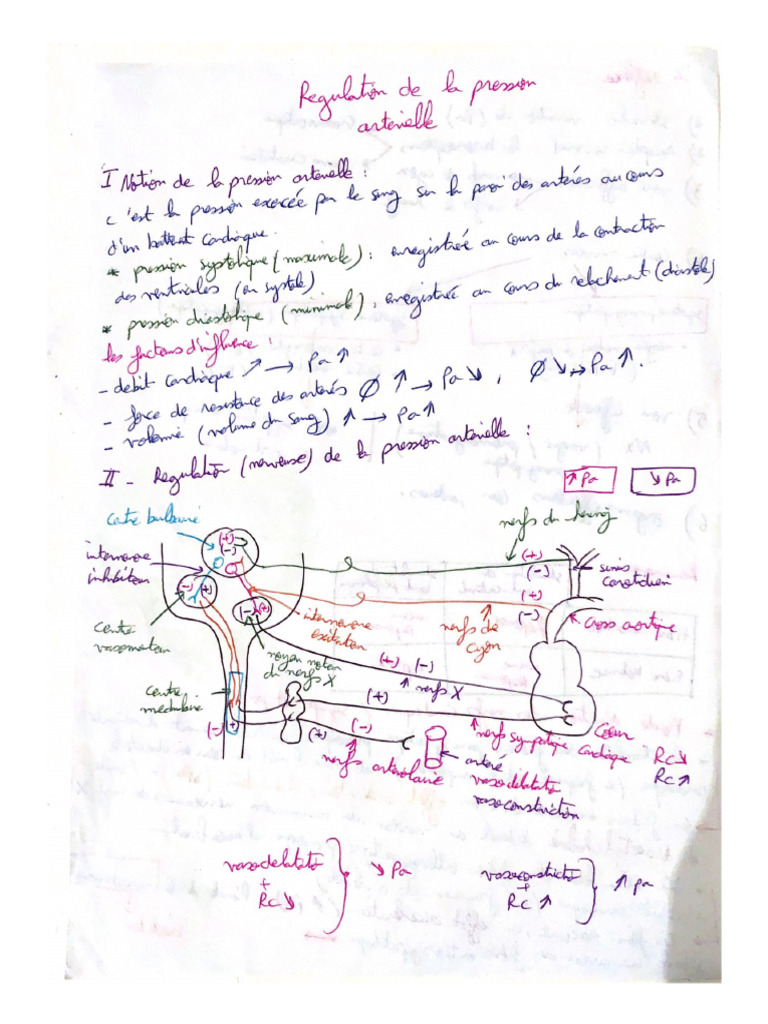 Regulation de la pression
arterielle
I Notion de la pression arterielle :
c'est la pression exercée par le sang sur la paroi des artérés au cours
d'un battent cardiaque.
* pression systolique (maximale) : enregistrée au cours de la contraction
des ventricules (en systole).
* pression diastolique (minimal) : enregistrée au cours du relachement (diastole)
les facteurs d'influence :
- debit cardiaque ↗ → Pa ↑
- force de resistance des artérés Ø ↑ → Pa ↘ , Ø ↘ → Pa ↑.
- volemie (volume du sang) ↑ → Pa ↑
II - Regulation (nerveuse) de la pression arterielle :
↑ Pa ↘ Pa
centre bulbaire
nerfs du hering
interneurone
inhibiteur
(+)
(-)
(+)
(-)
sinus
carotidien
(-) (+)
(-) (+)
(+)
(-)
interneurone
exitateur
nerfs de
cyon
cross aortique
centre
vasomoteur
noyau moteur
du nerfs X
(+) (-)
nerfs X
centre
medulaire
(+)
(-) (+)
(+)
(-)
nerfs sympatique cardiaque
Cœur
Rc ↘
Rc ↑
nerfs arteriolaire
artéré
vasodelatation
vasoconstriction
vasodelatat°
+
Rc ↘
↘ Pa
vasoconstrict°
+
Rc ↑
↑ Pa